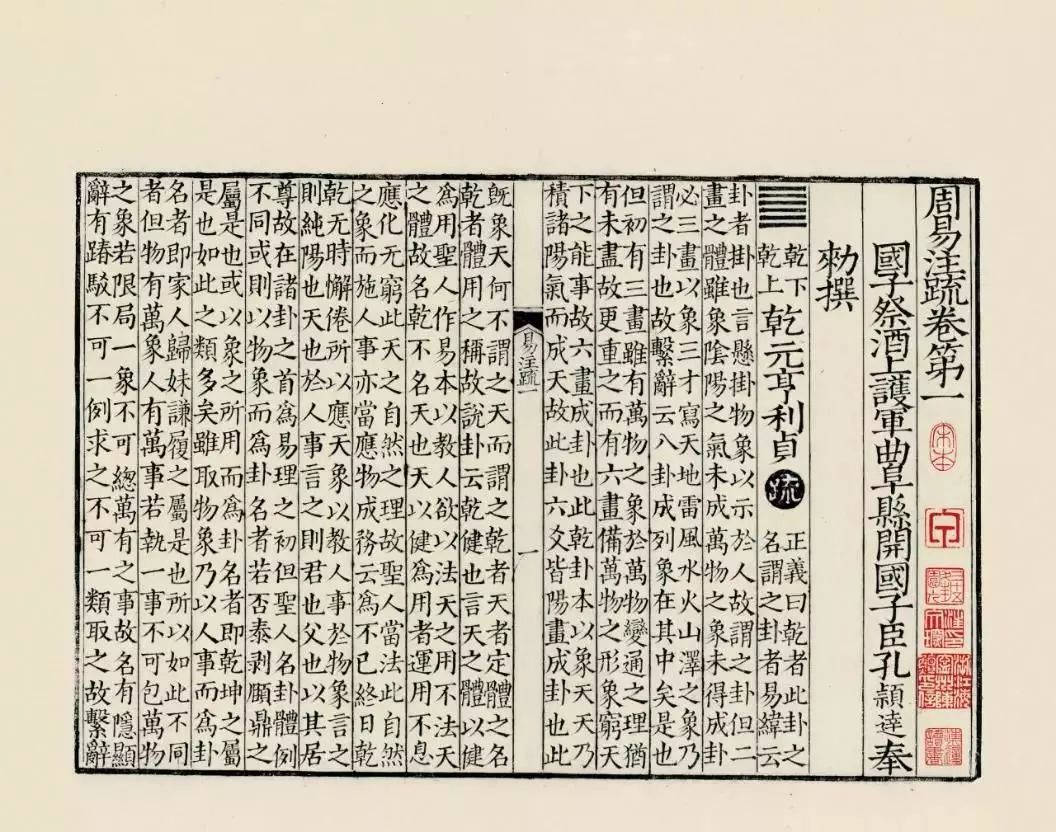 周易注疏卷第一
國子祭酒上護軍曲阜縣開國子臣孔穎達奉
勑撰
乾下
乾上
乾元亨利貞
疏
正義曰乾者此卦之
名謂之卦者易緯云
卦者掛也言懸掛物象以示於人故謂之卦但二
畫之體雖象陰陽之氣未成萬物之象未得成卦
必三畫以象三才寫天地雷風水火山澤之象乃
謂之卦也故繫辭云八卦成列象在其中矣是也
但初有三畫雖有萬物之象於萬物變通之理猶
有未盡故更重之而有六畫備萬物之形象窮天
下之能事故六畫成卦也此乾卦本以象天天乃
積諸陽氣而成天故此卦六爻皆陽畫成卦也此
易注疏一
一
既象天何不謂之天而謂之乾者天者定體之名
乾者體用之稱故說卦云乾健也言天之體以健
爲用聖人作易本以教人欲以法天之用不法天
之體故名乾不名天也天以健爲用者運用不息
應化无窮此天之自然之理故聖人當法此自然
之象而施人事亦當應物成務云爲不已終日乾
乾无時懈倦所以應天象以教人事於物象言之
則純陽也天也於人事言之則君也父也以其居
尊故在諸卦之首爲易理之初但聖人名卦體例
不同或則以物象而爲卦名者若否泰剥頤鼎之
屬是也或以象之所用而爲卦名者即乾坤之屬
是也如此之類多矣雖取物象乃以人事而爲卦
名者即家人歸妹謙履之屬是也所以如此不同
者但物有萬象人有萬事若執一事不可包萬物
之象若限局一象不可緫萬有之事故名有隱顯
辭有踳駮不可一例求之不可一類取之故繫辭
宋本